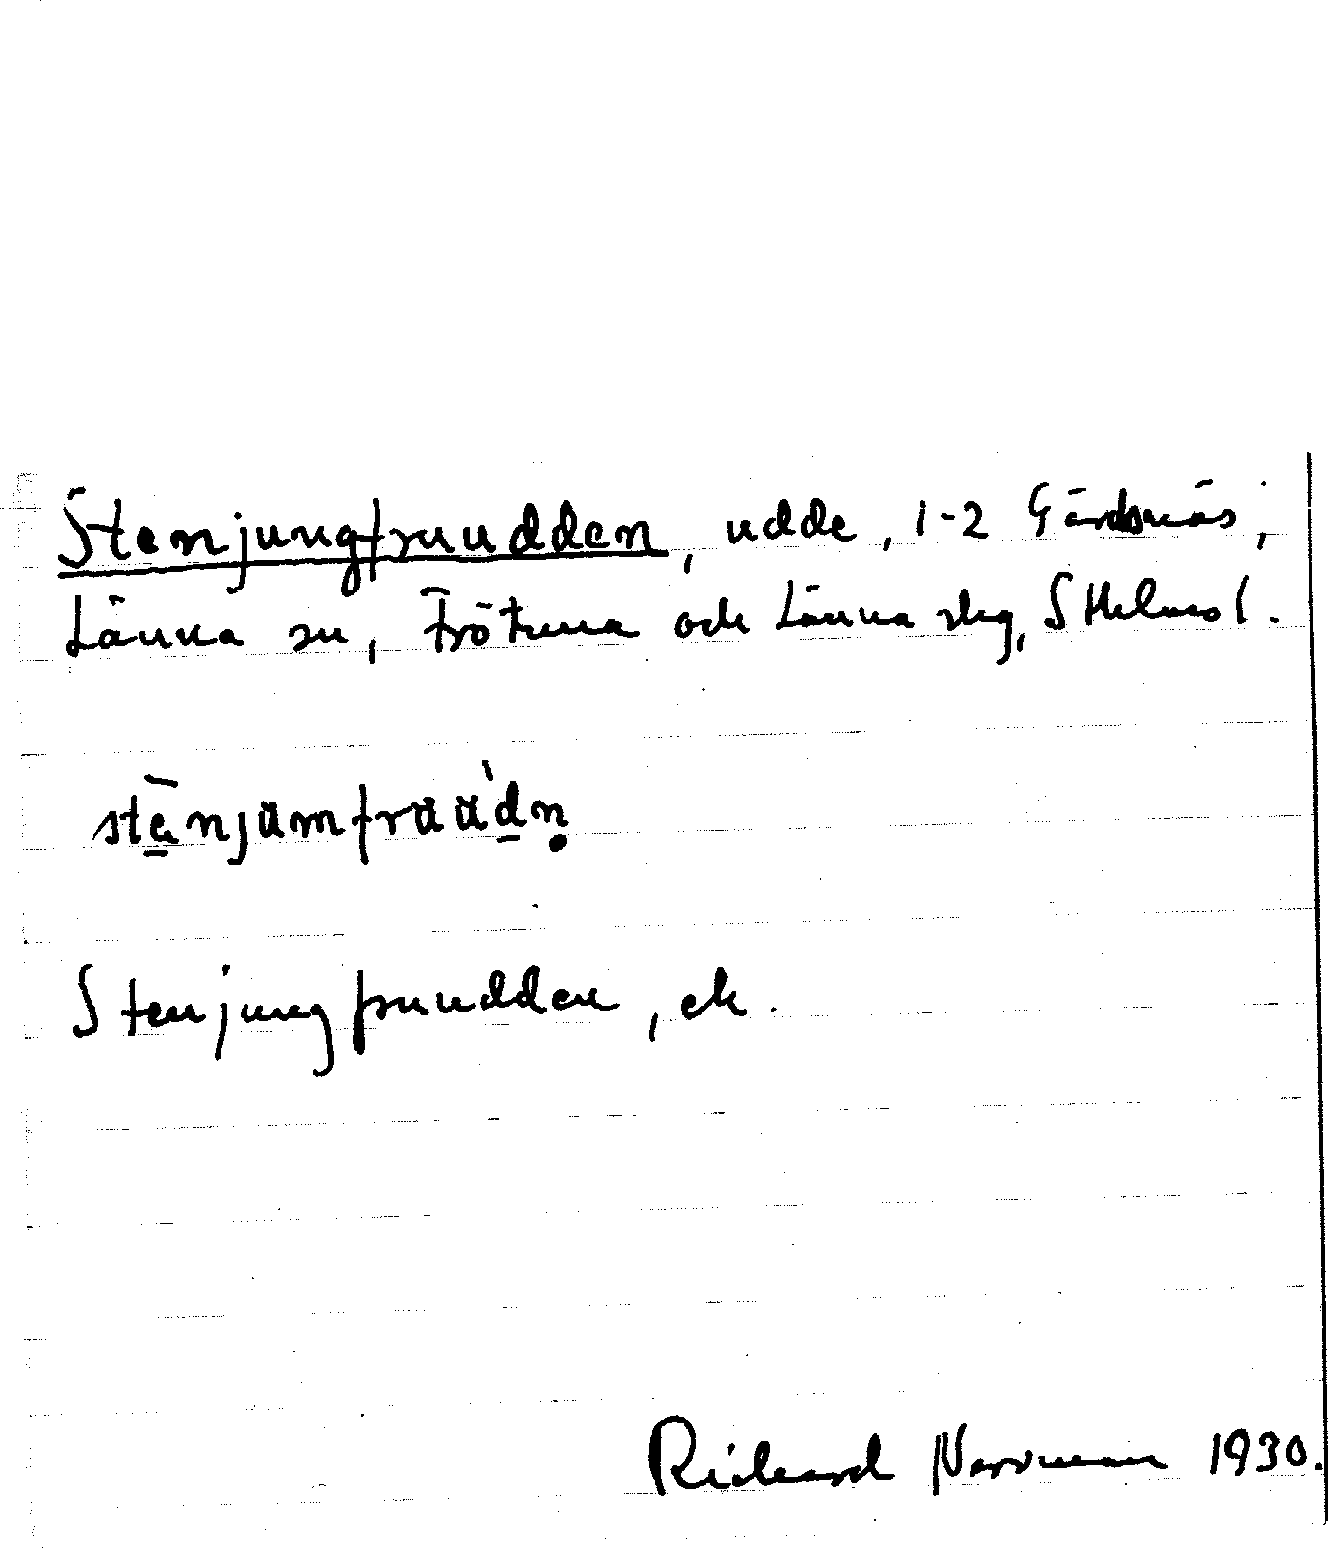 Stenjungfruudden, udde, 1-2 Gärdsnäs;
Länna sn, Frötuna och Länna slg, Sthlms l.
stēnjumfruùdn̥
Stenjungfruudden, ek.
Rickard Norrman 1930.